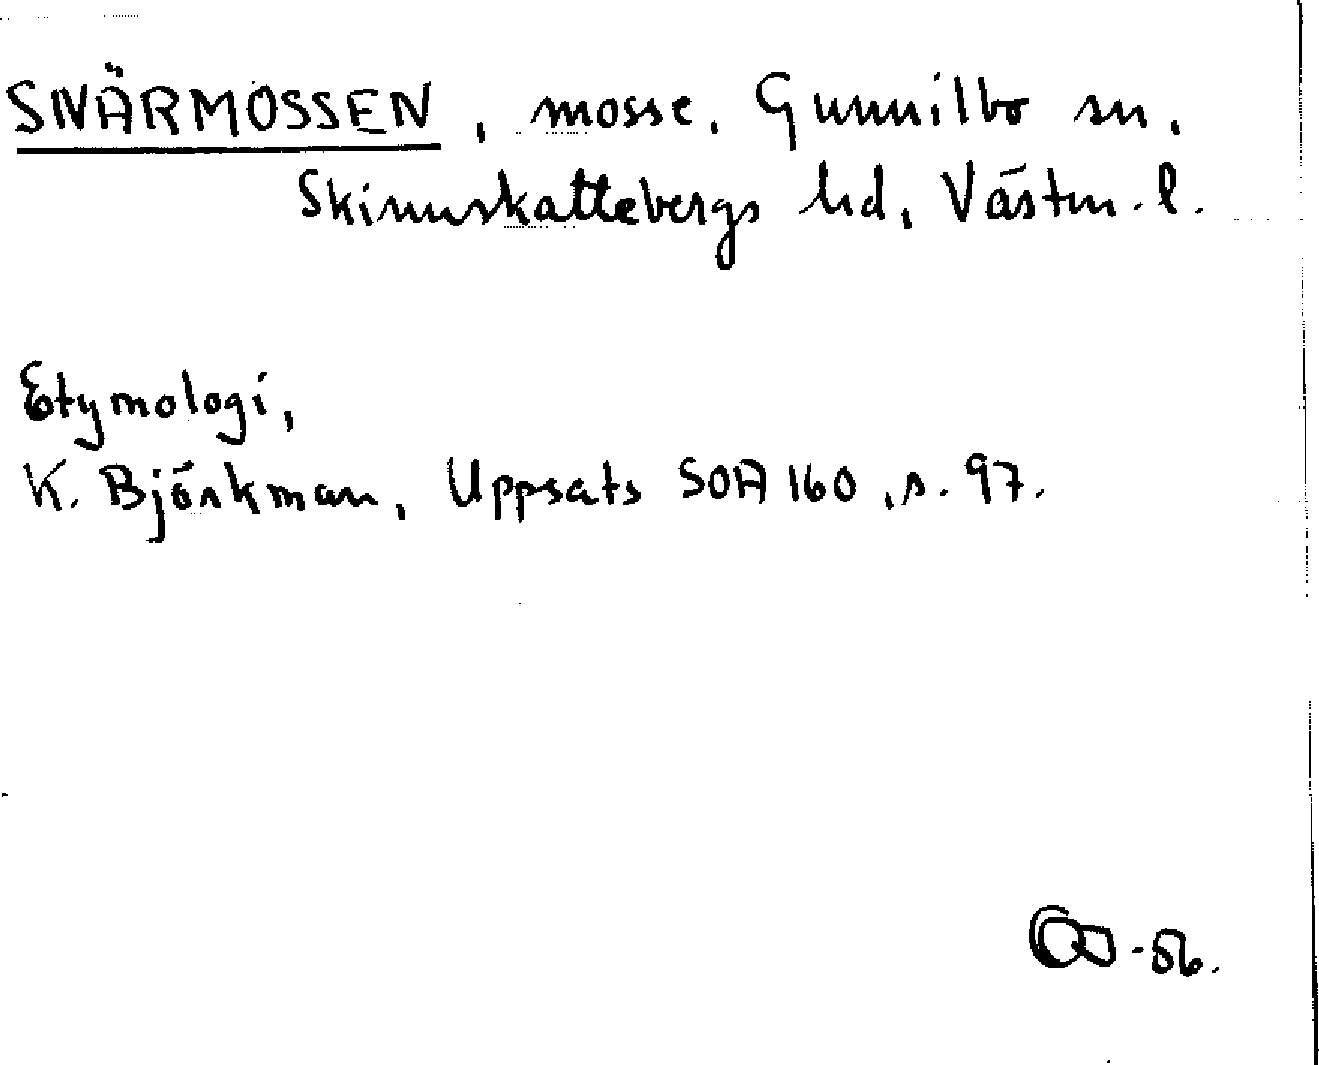 SNÄRMOSSEN, mosse, Gunnilbo sn,
Skinnskattebergs hd, Västm. l.
Etymologi,
K. Björkman, Uppsats SOA 160, s. 97.
-56.